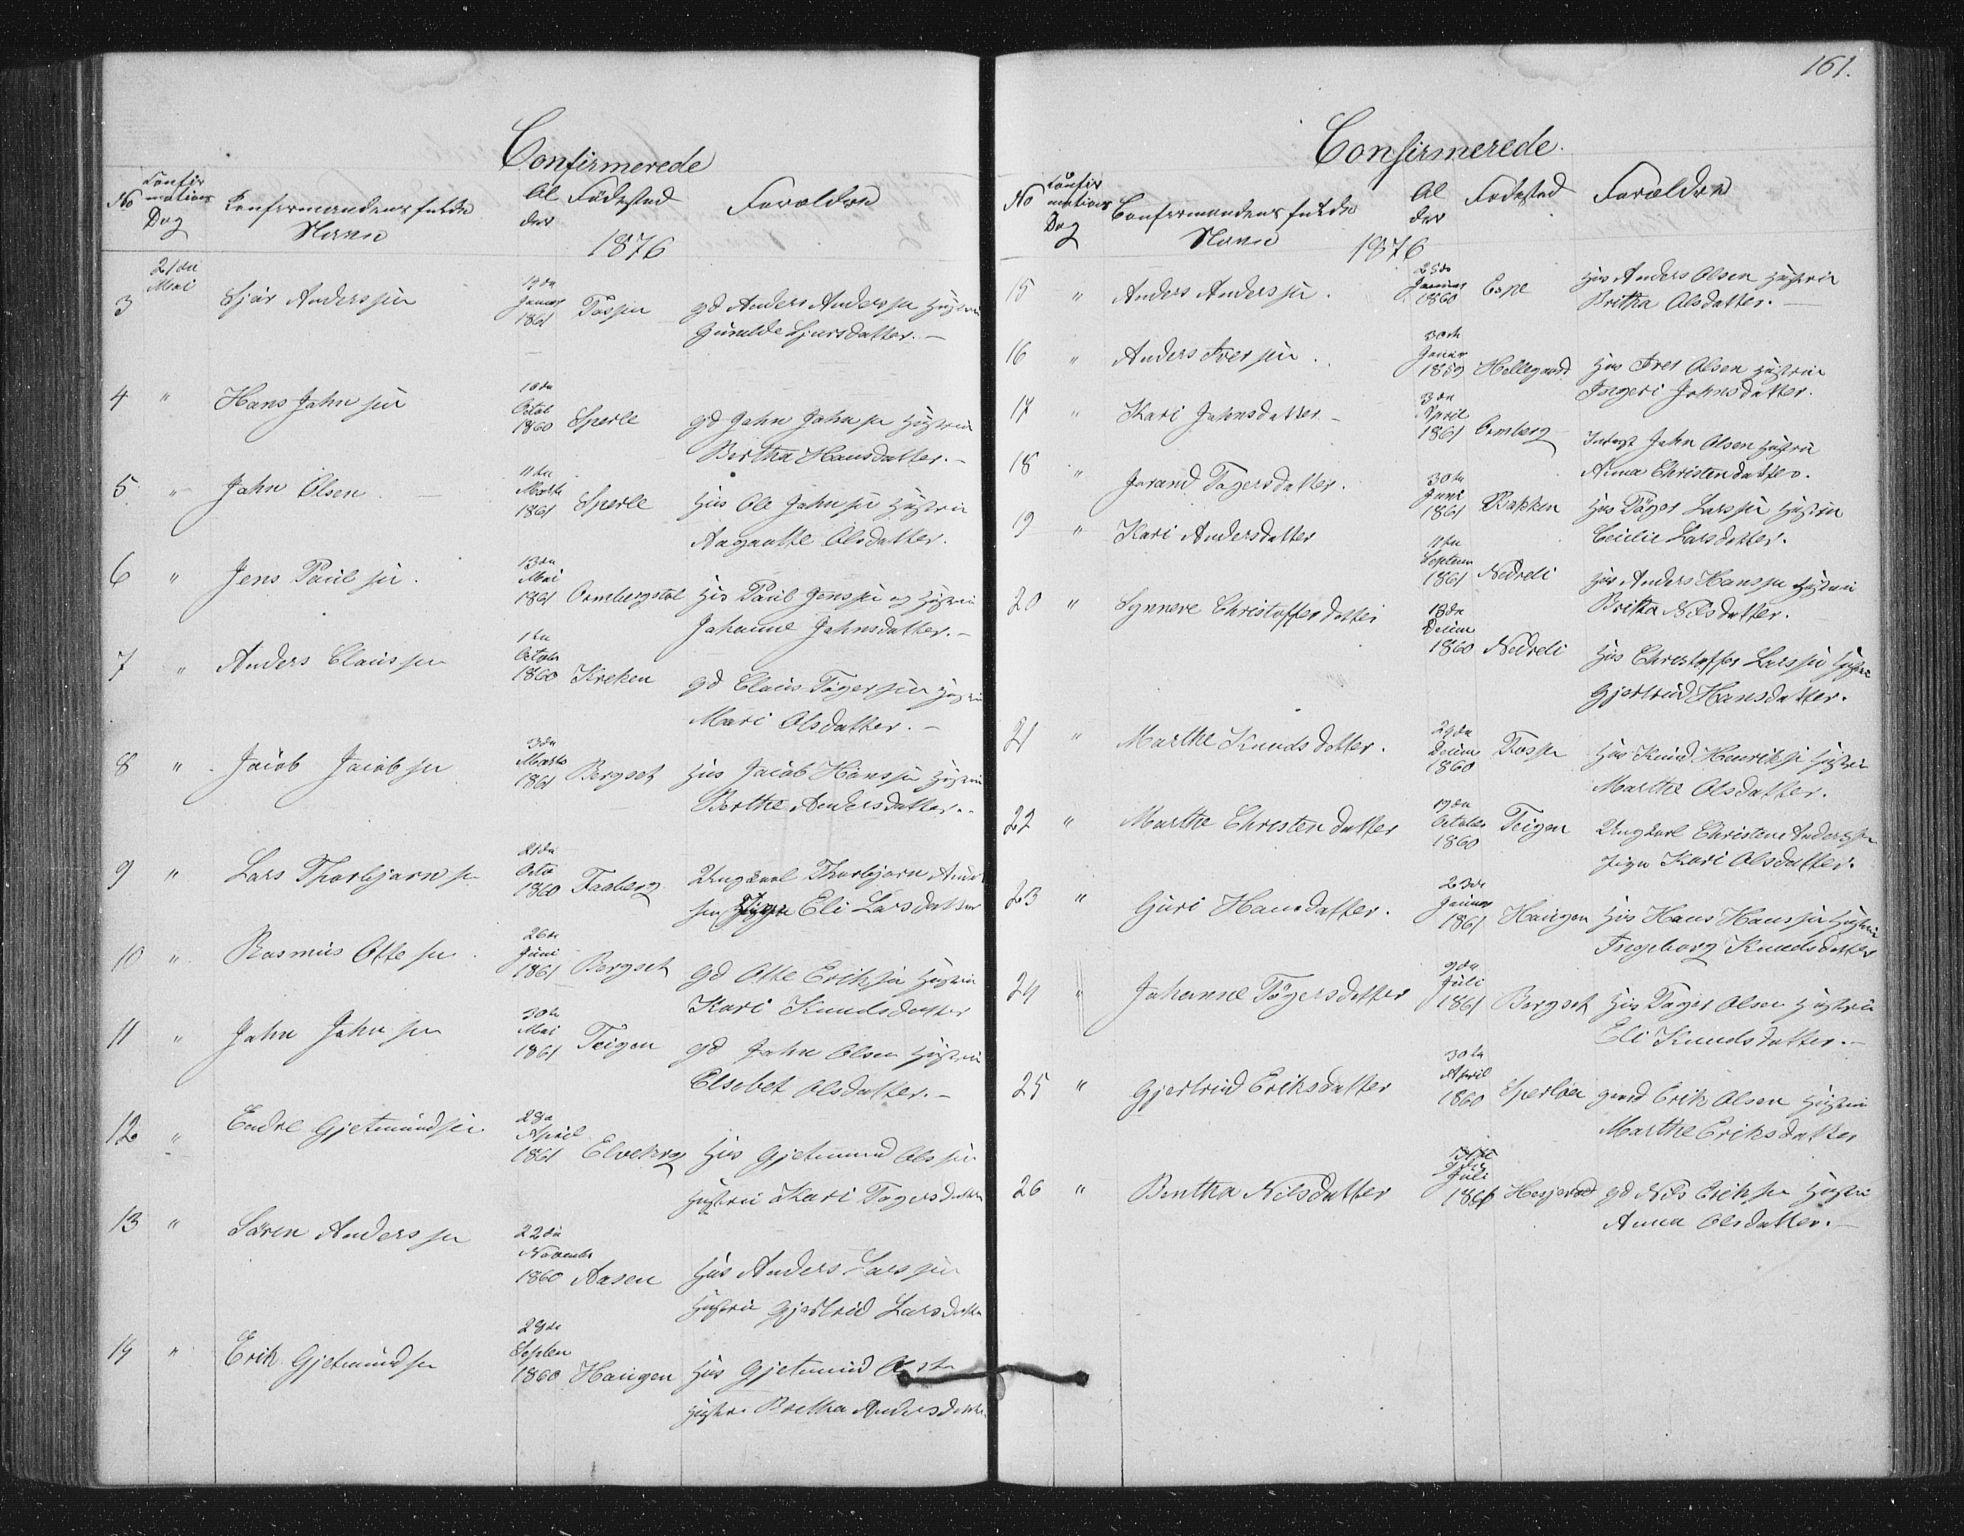 Confirmerede
No Confirmations Dag Confirmandens fulde Navn Alder Födested Forældre
1876
3 21de Mai Sjur Anderssen 19de Januar 1861 Tossen gd Anders Anderssen Hustrue
Gunilde Sjursdatter. —
4 " Hans Jahnssen 10de Octob 1860 Sperle gd Jahn Jahnssen Hustrue
Bertha Hansdatter. —
5 " Jahn Olsen. 11te Marts 1861 Sperle Hus Ole Jahnssen Hustrue
Aagaatte Olsdatter.
6 " Jens Paulssen. 13de Mai 1861 Ormbergstøl Hus Paul Jenssen og Hustrue
Johanne Jahnsdatter. —
7 " Anders Claussen 1te October 1860 Kreken gd Claus Tögerssen Hustrue
Mari Olsdatter. —
8 " Jacob Jacobssen 3de Marts 1861 Bergset Hus Jacob Hanssen Hustrue
Berthe Andersdatter. -
9 " Lars Thorbjørnssen 21de Octo 1860 Faaberg Ungkarl Thorbjørn Anders
sen Pigen Eli Larsdatter
10 " Rasmus Ottessen 26de Juni 1861 Bergset gd Otte Erikssen Hustrue
Kari Knudsdatter
11 " Jahn Jahnssen 30te Mai 1861 Teigen gd Jahn Olsen Hustrue
Elsebet Olsdatter. —
12 " Endre Gjetmundssen April 1861 Elvekrog Hus Gjetmund Olssen
Hustrue Kari Tögersdatter
13 " Sören Anderssen 22de Novemb 1860 Aasen Hus Anders Larssen
Hustrue Gjertrud Larsdatter
14 " Erik Gjetmundssen 29de Septem 1860 Haugen Hus Gjetmund
Hustrue Bretha Andersdatter
161.
Confirmerede.
No Confirmations Dag Confirmandens fulde Navn Alder Födested Forældre
1876
15 " Anders Anderssen. 25de Januar 1860 Espe Hus Anders Olsen Hustrue
Britha Olsdatter. —
16 " Anders Iverssen. 30te Januar 1859 Hellegaard Hus Iver Olsen Hustrue
Ingeri Johnsdatter.
17 " Kari Jahnsdatter — 3de April 1861 Ormberg Inderst Jahn Olsen Hustrue
Anna Christendatter.
18 " Jorand Tögersdatter. 30te Juni 1861 Bakken Hus Töger Larssen Hustrue
Cecilie Larsdatter.
19 " Kari Andersdatter 11te Septem 1861 Nedreli Hus Anders Hanssen Hustrue
Britha Nilsdatter.
20 " Synnøve Christofferdatter 18de Decem 1860 Nedreli Hus Christoffer Larssen Hustrue
Gjertrud Hansdatter.
21 " Marthe Knudsdatter. 29de Decem 1860 Tossen Hus Knud Henrikssen Hustrue
Marthe Olsdatter.
22 " Marthe Christendatter 19de October 1860 Teigen Ungkarl Christen Anderssen
Pigen Kari Olsdatter.
23 " Guri Hansdatter. 23de Januar 1861 Haugen Hus Hans Hanssen Hustrue
Ingeborg Knudsdatter
24 " Johanne Tögersdatter 9de Juli 1861 Bergset Hus Töger Olsen Hustrue
Eli Knudsdatter. —
25 " Gjertrud Eriksdatter 30te April 1860 Sperløen gmd Erik Olsen Hustrue
Marthe Eriksdatter
26 " Bentha Nilsdatter Juli 1861 gd Nils Erikssen Hustrue
Anna Olsdatter. —